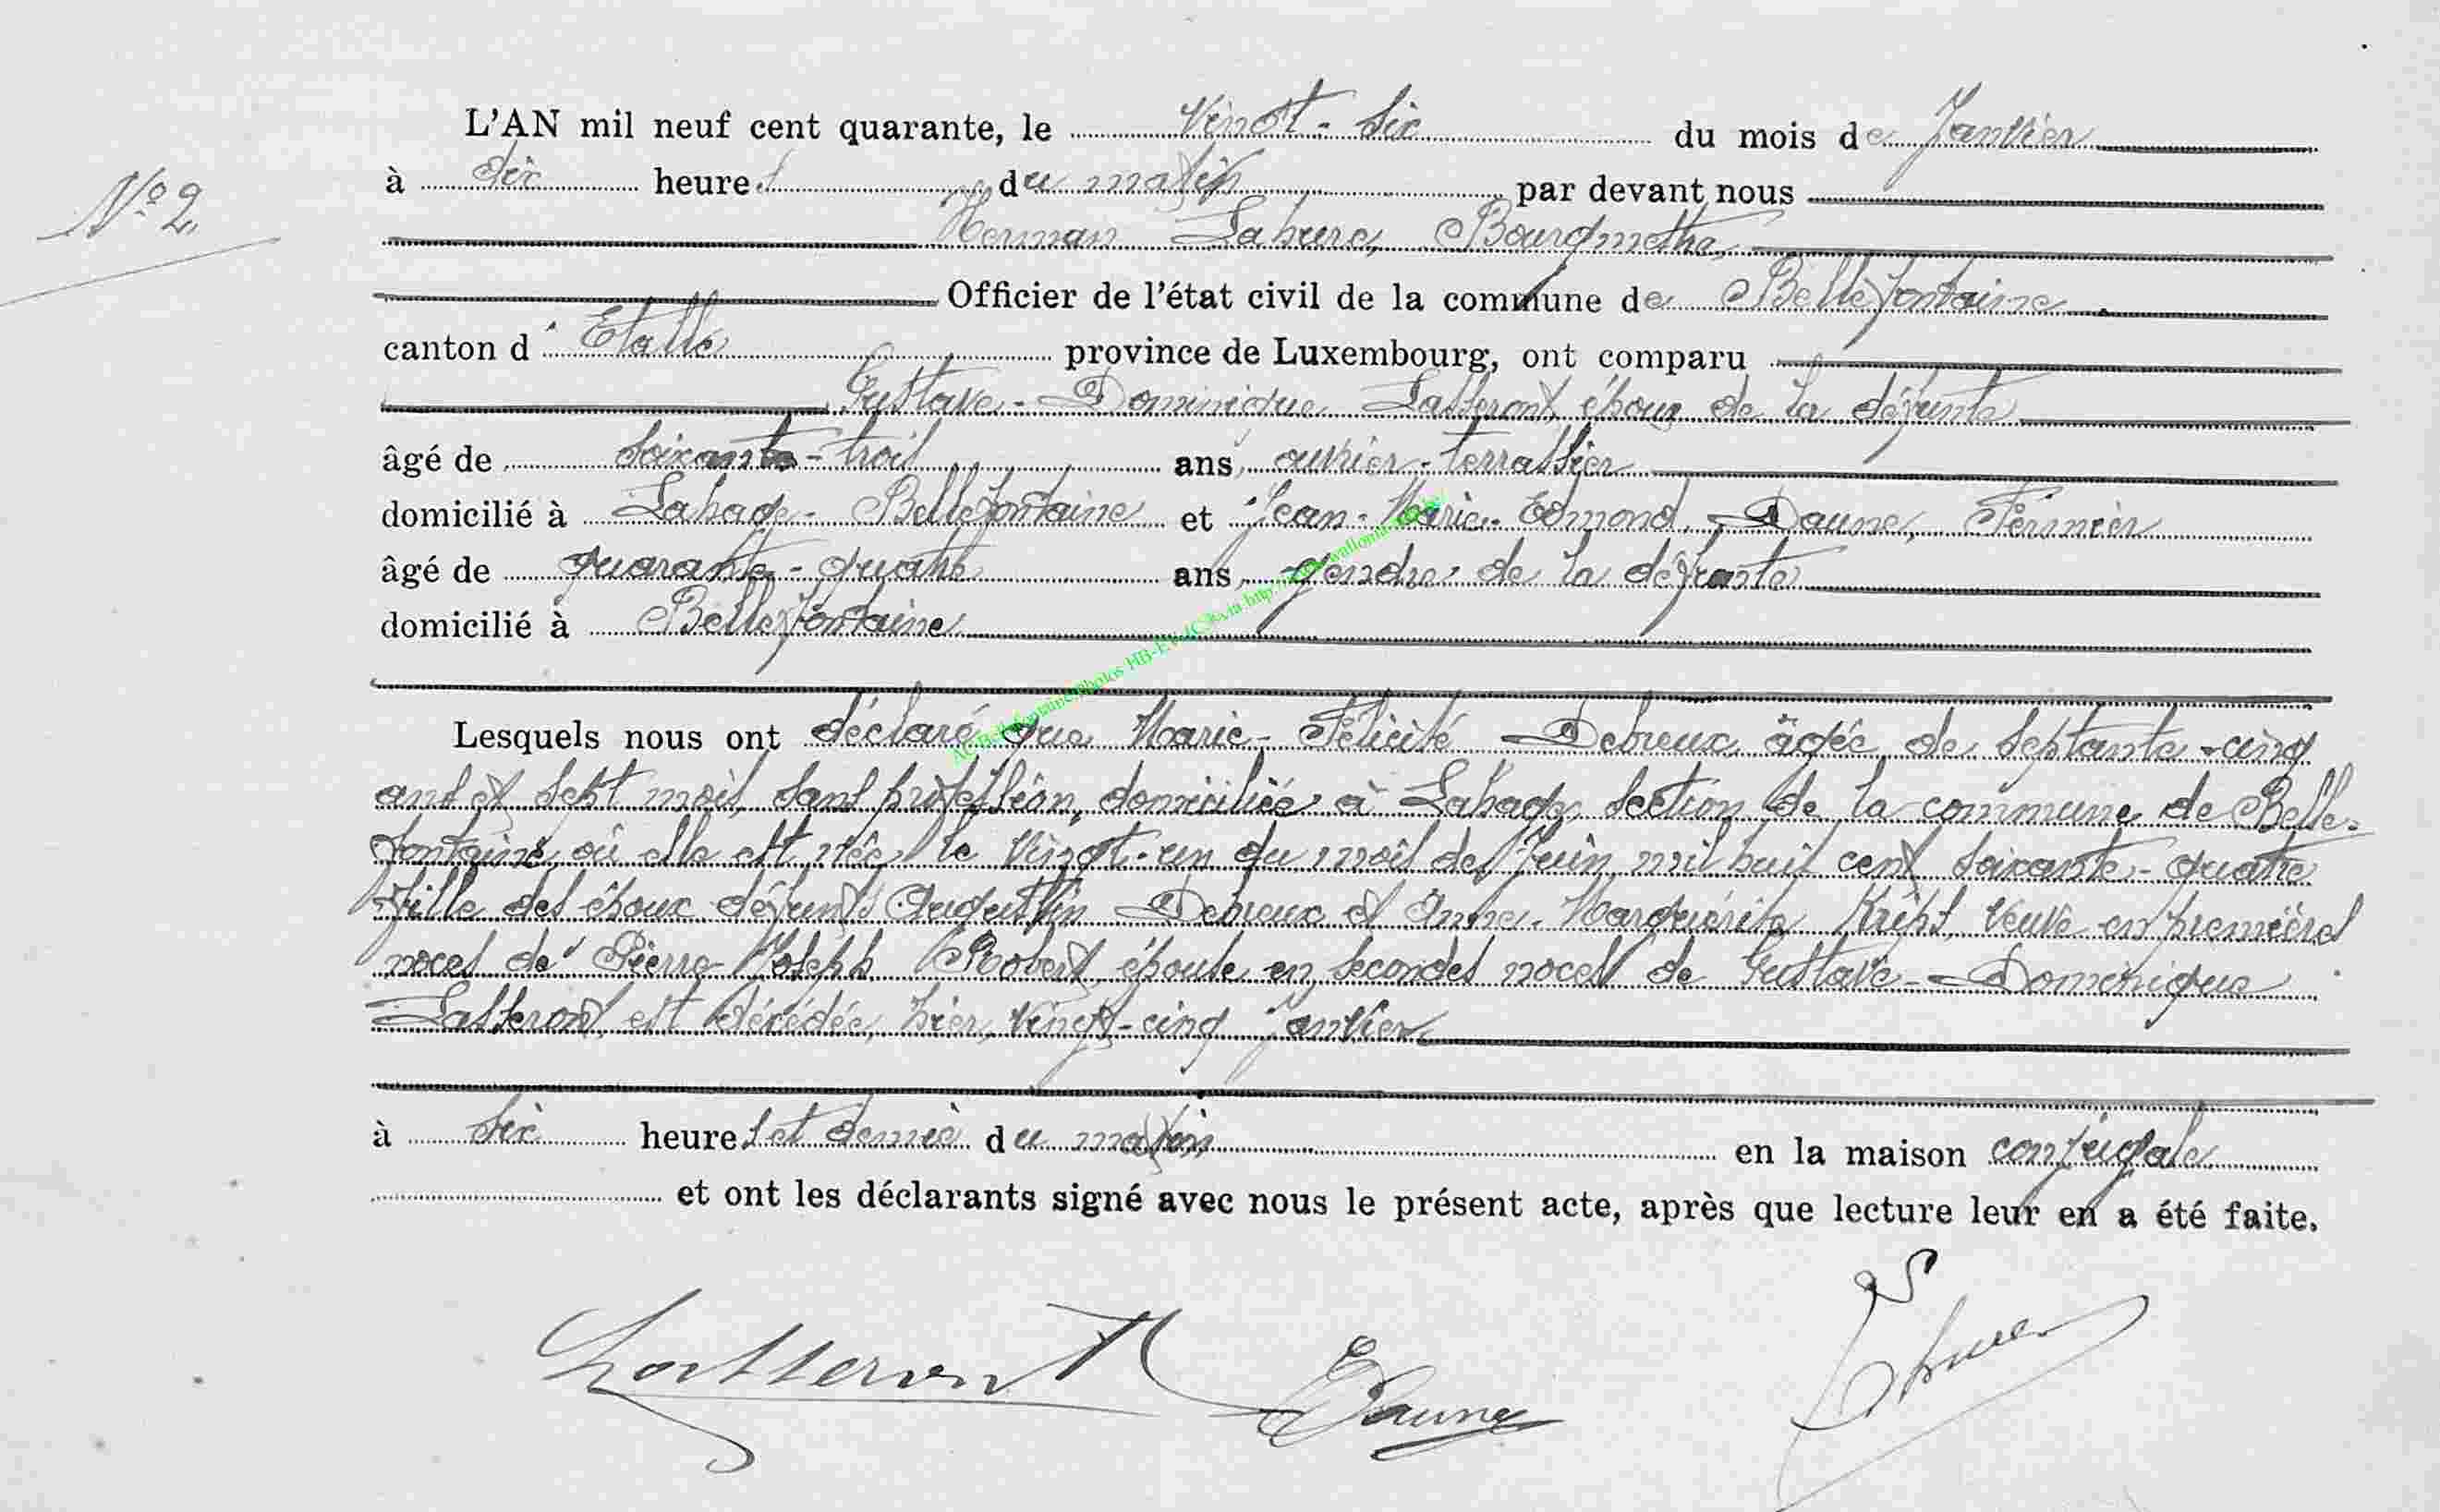 L'AN mil neuf cent quarante, le vingt-six du mois de Janvier
N° 2
à dix heures du matin par devant nous
Herman Lahure, Bourgmestre,
Officier de l'état civil de la commune de Bellefontaine
canton d'Etalle province de Luxembourg, ont comparu
Gustave-Dominique Lasseront époux de la défunte
âgé de soixante-trois ans, ouvrier-terrassier
domicilié à Lahage-Bellefontaine et Jean-Marie-Edmond Daune, Fermier
âgé de quarante-quatre ans, gendre de la défunte
domicilié à Bellefontaine
Lesquels nous ont déclaré que Marie-Félicité Debreux âgée de septante-cinq
ans et sept mois, sans profession, domiciliée à Lahage, section de la commune de Belle-
fontaine, où elle est née le vingt-un du mois de Juin mil huit cent soixante-quatre
fille des époux défunts Augustin Debreux et Anne-Marguérite Krips, veuve en premières
noces de Pierre-Joseph Robert, épouse en secondes noces de Gustave-Dominique
Lasseront, est décédée, hier, vingt-cinq janvier
à six heures et demie du matin en la maison conjugale
et ont les déclarants signé avec nous le présent acte, après que lecture leur en a été faite.
Lasseront
E Daune